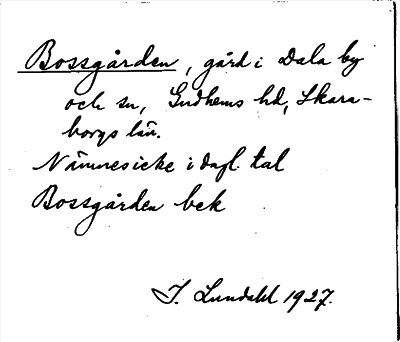 Bossgården, gård i Dala by
och sn, Gudhems hd, Skara-
borgs län.
Nämnes icke i dagl. tal
Bossgården bek
I. Lundahl 1927.